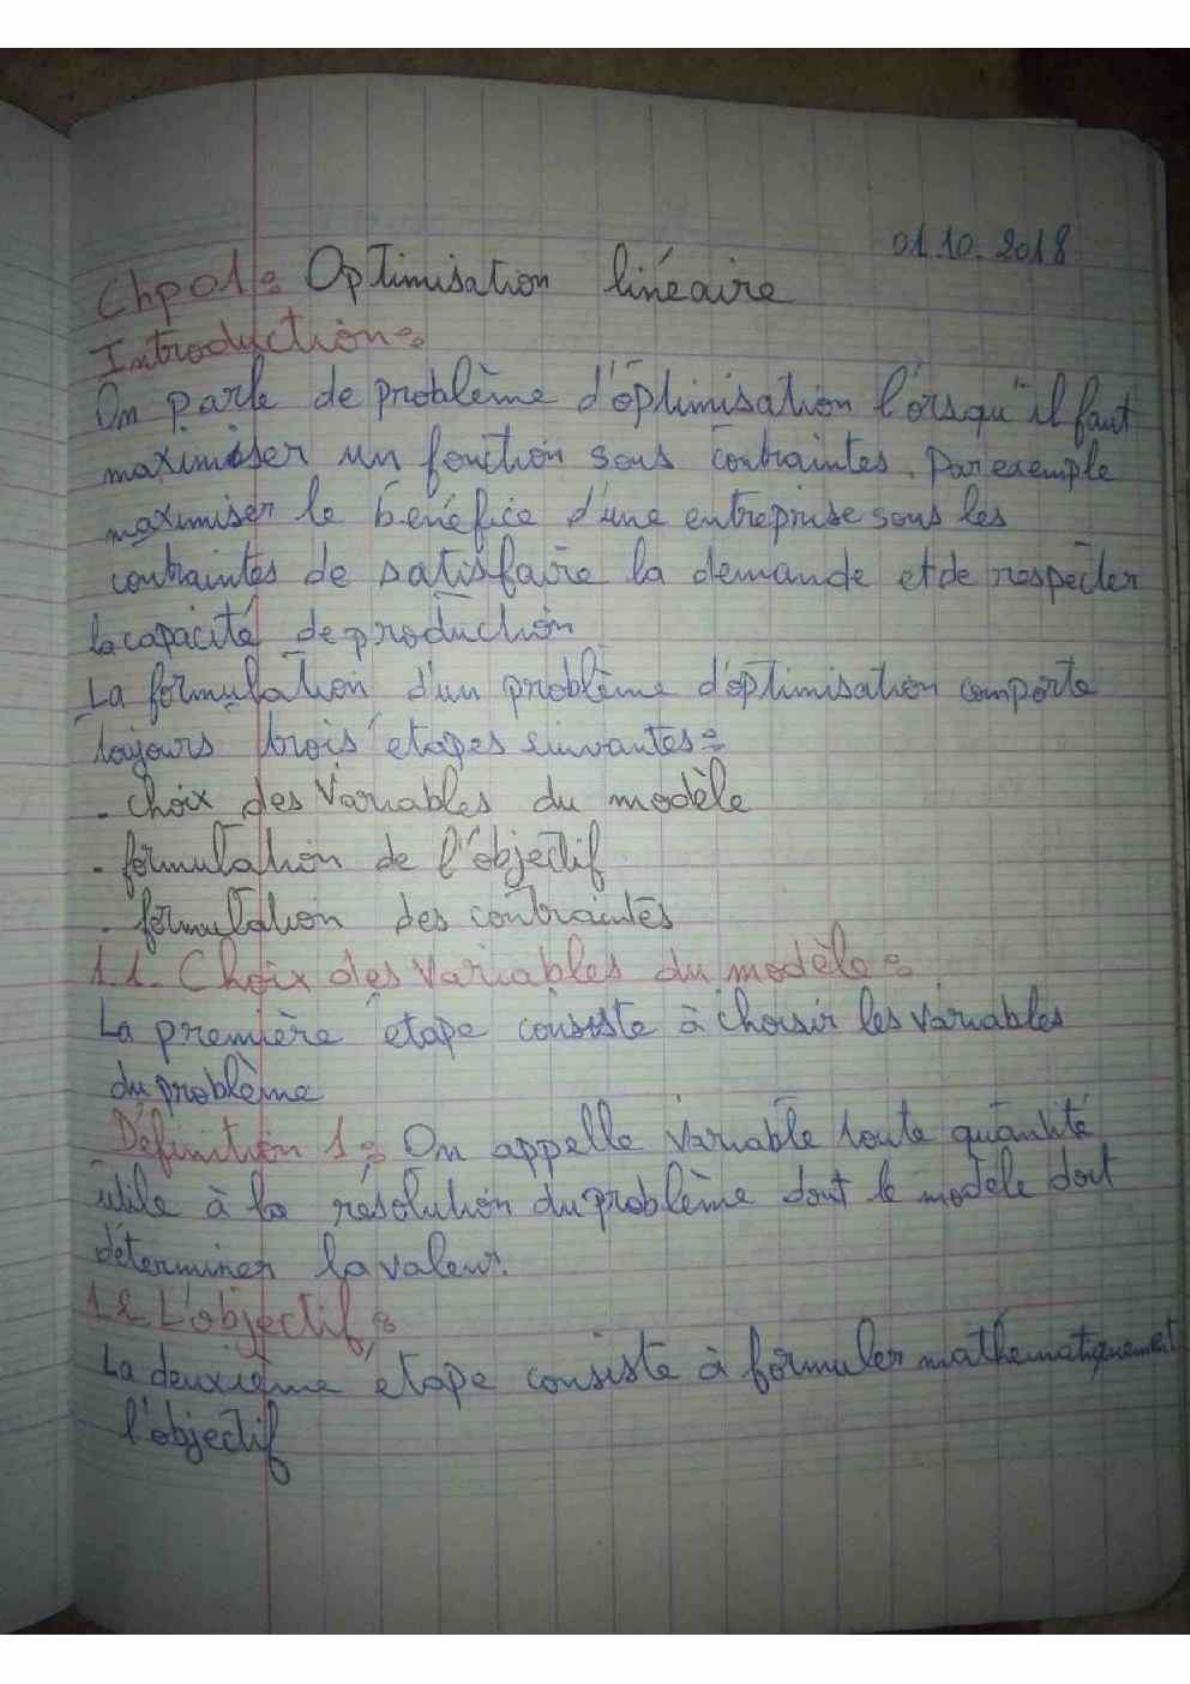 01.10.2018
Chp01: Optimisation linéaire
Introduction:
On parle de problème d'optimisation lorsqu'il faut
maximiser un fonction sous contraintes. Par exemple
maximiser le bénéfice d'une entreprise sous les
contraintes de satisfaire la demande et de respecter
la capacité de production
La formulation d'un problème d'optimisation comporte
toujours trois étapes suivantes:
- choix des variables du modèle
- formulation de l'objectif
- formulation des contraintes
1.1. Choix des variables du modèle:
La première étape consiste à choisir les variables
du problème
Définition 1: On appelle variable toute quantité
utile à la résolution du problème dont le modèle doit
déterminer la valeur.
1.2 L'objectif:
La deuxième étape consiste à formuler mathématiquement
l'objectif